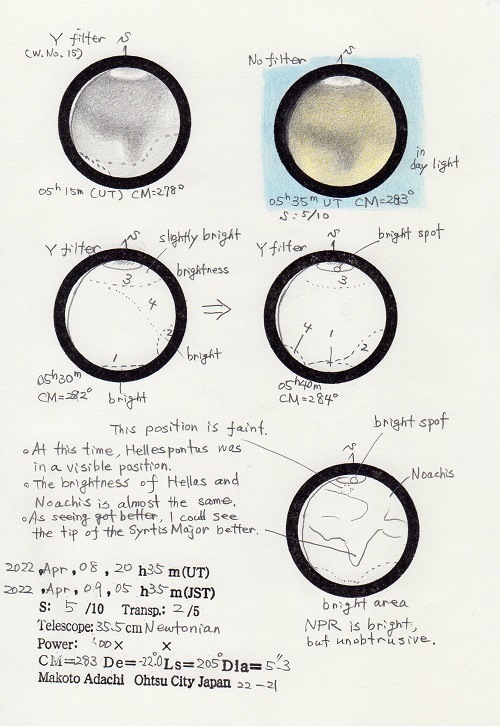 Y filter
(W.No.15)
S
05h 15m (UT) CM=278°
No filter
S
in
day light
05h 35m UT CM=283°
S:5/10
Y filter
S
slightly bright
brightness
3
4
2
1
bright
bright
05h30m
CM=282°
⇒
Y filter
S
bright spot
3
4
1
2
05h40m
CM=284°
This position is faint.
∘At this time, Hellespontus was
in a visible position.
∘The brightness of Hellas and
Noachis is almost the same.
∘As seeing got better, I could see
the tip of the Syrtis Major better.
S
bright spot
Noachis
bright area
NPR is bright,
but unobtrusive.
2022, Apr, 08, 20 h35 m(UT)
2022, Apr, 09, 05 h35 m(JST)
S: 5 /10 Transp.: 2 /5
Telescope: 35.5cm Newtonian
Power: 400× ×
CM=283 De=-22.0 Ls=205° Dia=5"3
Makoto Adachi Ohtsu City Japan 22-21